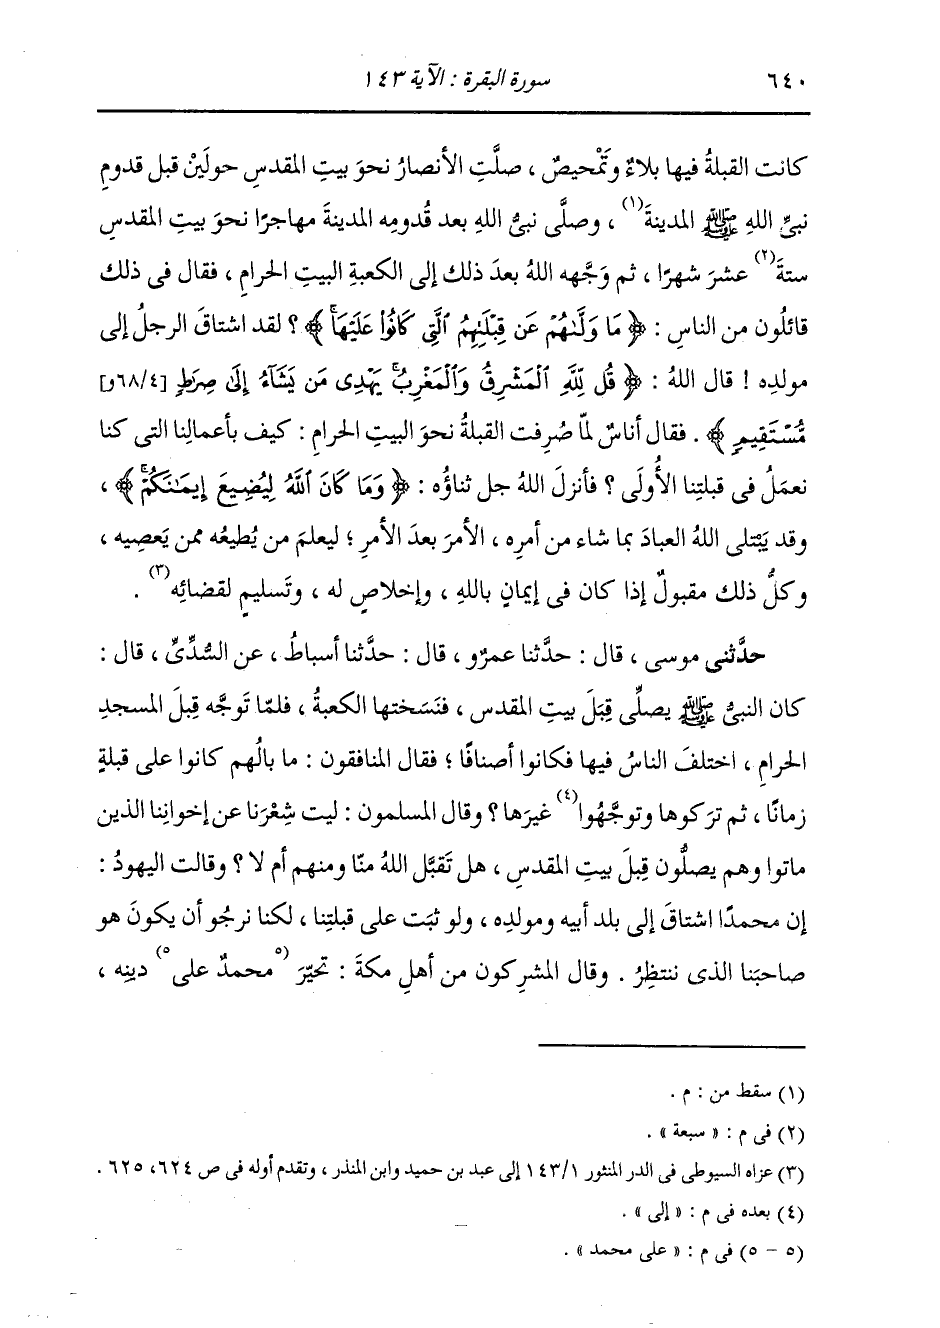 ٦٤٠ سورة البقرة : الآية ١٤٣
كانت القبلةُ فيها بلاءٌ وتَمْحيصٌ ، صلَّتِ الأنصارُ نحوَ بيتِ المقدسِ حولَيْن قبل قدومِ
نبىِّ اللهِ ﷺ المدينةَ(١) ، وصلَّى نبىُّ اللهِ بعد قُدومِه المدينةَ مهاجرًا نحوَ بيتِ المقدسِ
ستةَ(٢) عشرَ شهرًا ، ثم وَجَّهه اللهُ بعدَ ذلك إلى الكعبةِ البيتِ الحرامِ ، فقال فى ذلك
قائلُون من الناسِ : ﴿ مَا وَلَّىٰهُمْ عَن قِبْلَتِهِمُ ٱلَّتِى كَانُوا۟ عَلَيْهَا ۚ ﴾ ؟ لقد اشتاقَ الرجلُ إلى
مولدِه ! قال اللهُ : ﴿ قُل لِّلَّهِ ٱلْمَشْرِقُ وَٱلْمَغْرِبُ ۚ يَهْدِى مَن يَشَآءُ إِلَىٰ صِرَٰطٍ [٦٨/٤و]
مُّسْتَقِيمٍ ﴾ . فقال أناسٌ لمّا صُرِفت القبلةُ نحوَ البيتِ الحرامِ : كيف بأعمالِنا التى كنا
نعمَلُ فى قبلتِنا الأُولَى ؟ فأنزلَ اللهُ جل ثناؤُه : ﴿ وَمَا كَانَ ٱللَّهُ لِيُضِيعَ إِيمَـٰنَكُمْ ۚ ﴾ ،
وقد يَبْتلى اللهُ العبادَ بما شاء من أمرِه ، الأمرَ بعدَ الأمرِ ؛ ليعلمَ من يُطيعُه ممن يَعصِيه ،
وكلُّ ذلك مقبولٌ إذا كان فى إيمانٍ باللهِ ، وإخلاصٍ له ، وتَسليمٍ لقضائِه(٣) .
حدَّثنى موسى ، قال : حدَّثنا عمرٌو ، قال : حدَّثنا أسباطُ ، عن السُّدِّىِّ ، قال :
كان النبىُّ ﷺ يصلِّى قِبَلَ بيتِ المقدسِ ، فنَسَختها الكعبةُ ، فلمّا تَوجَّه قِبلَ المسجدِ
الحرامِ ، اختلفَ الناسُ فيها فكانوا أصنافًا ؛ فقال المنافقون : ما بالُهم كانوا على قبلةٍ
زمانًا ، ثم ترَكوها وتوجَّهُوا(٤) غيرَها ؟ وقال المسلمون : ليت شِعْرَنا عن إخوانِنا الذين
ماتوا وهم يصلُّون قِبلَ بيتِ المقدسِ ، هل تَقبَّل اللهُ منّا ومنهم أم لا ؟ وقالت اليهودُ :
إن محمدًا اشتاقَ إلى بلد أبيه ومولدِه ، ولو ثبَت على قبلتِنا ، لكنا نرجُو أن يكونَ هو
صاحبَنا الذى ننتظِرُ . وقال المشرِكون من أهلِ مكةَ : تحيَّرَ (٥محمدٌ على٥) دينِه ،
(١) سقط من : م .
(٢) فى م : « سبعة » .
(٣) عزاه السيوطى فى الدر المنثور ١٤٣/١ إلى عبد بن حميد وابن المنذر ، وتقدم أوله فى ص ٦٢٤، ٦٢٥ .
(٤) بعده فى م : « إلى » .
(٥ - ٥) فى م : « على محمد » .